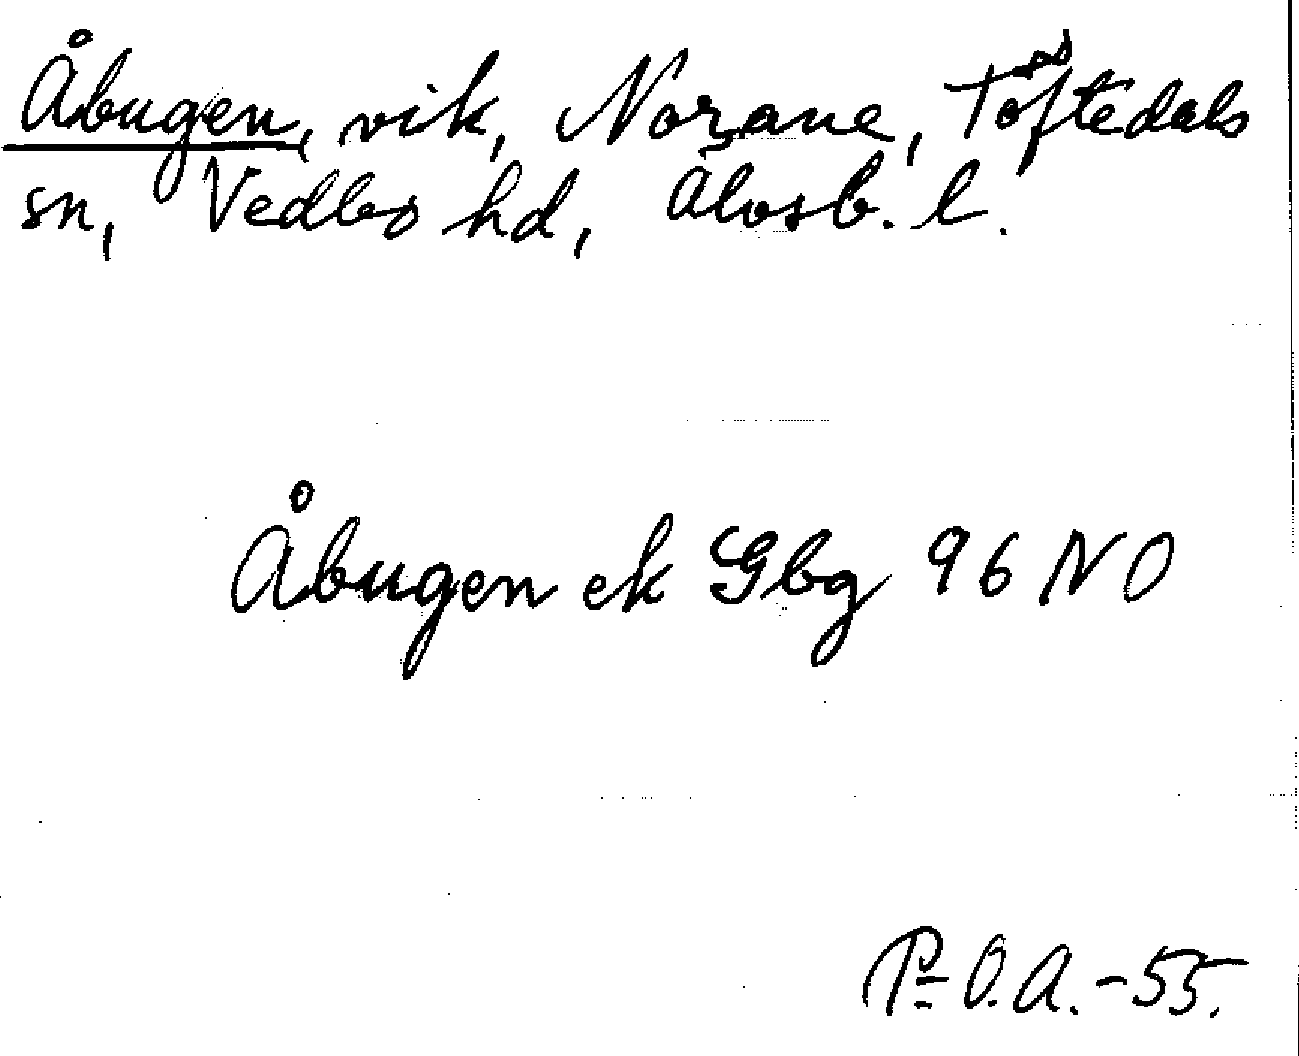 Åbugen, vik, Norane, Töftedals
sn, Vedbo hd, Älvsb. l.
Åbugen ek Gbg 96 NO
P-O.A.-55.